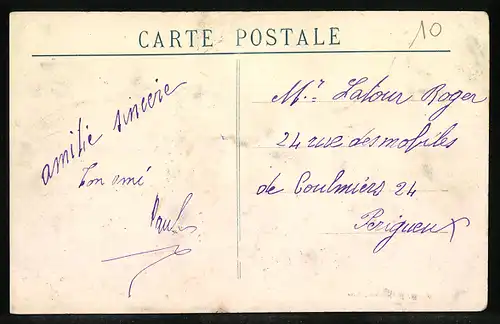 CARTE POSTALE
10
amitié sincère
Ton ami
Paul
Mr. Latour Roger
24 rue des mobiles
de Coulmiers 24
Périgueux